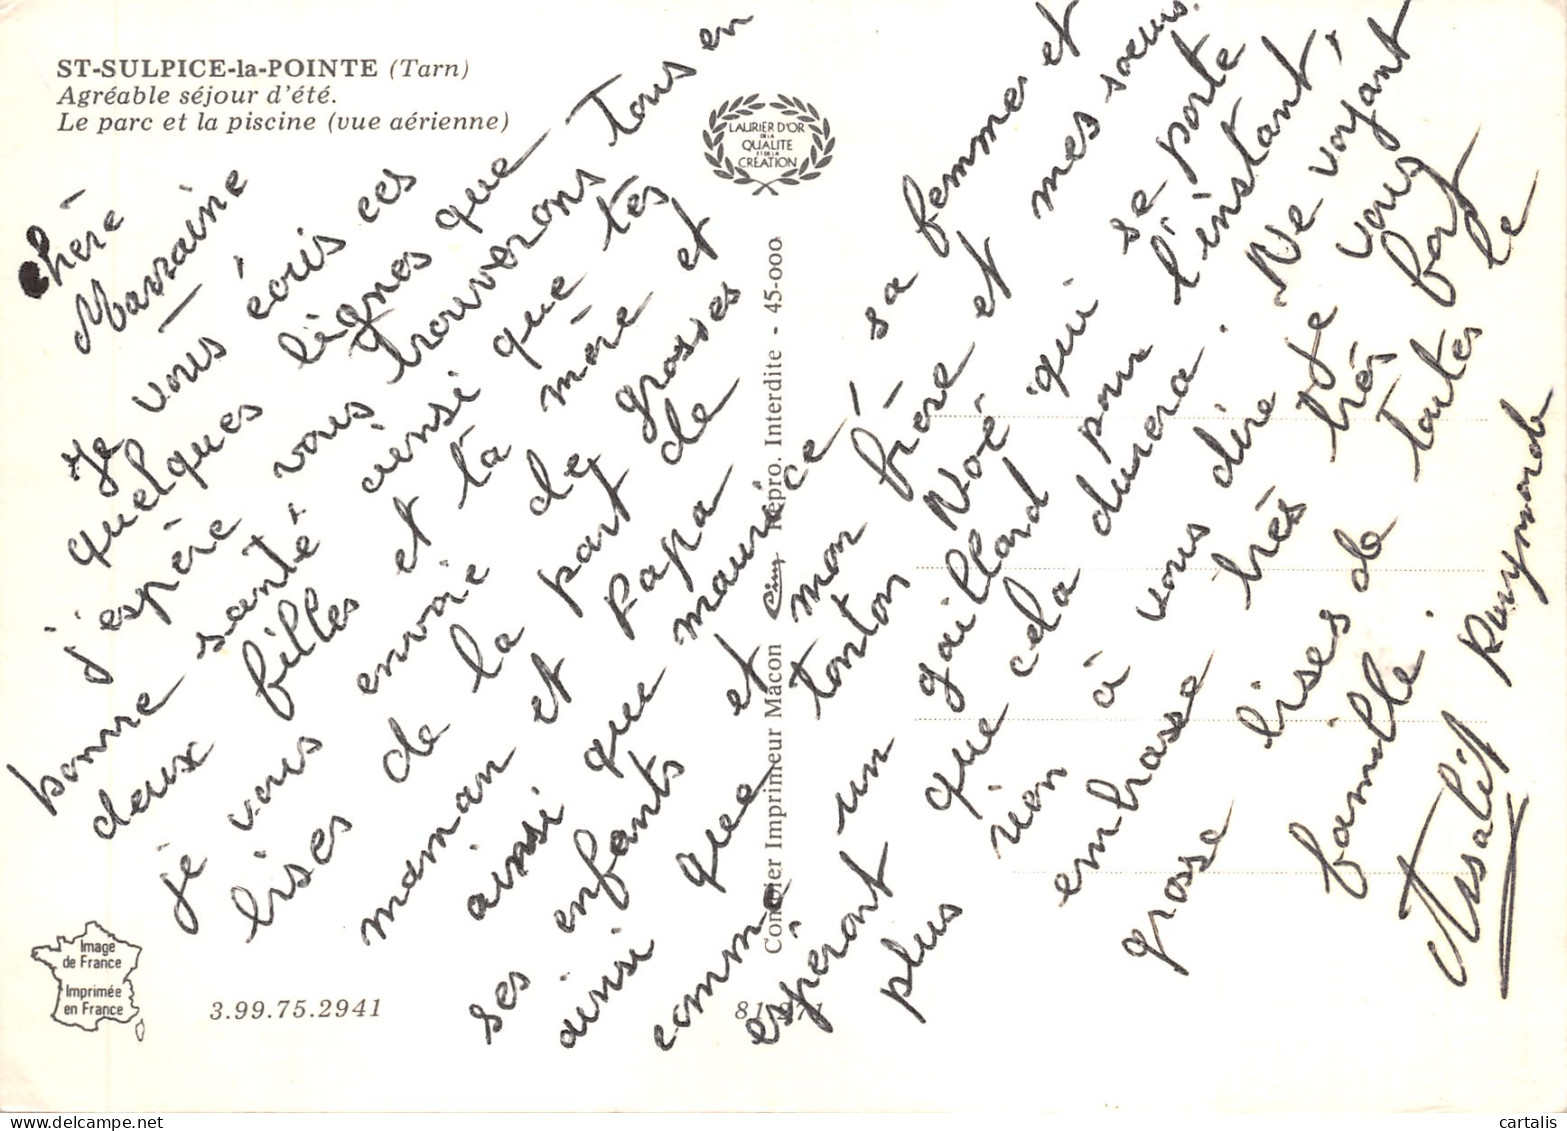 ST-SULPICE-la-POINTE (Tarn)
Agréable séjour d'été.
Le parc et la piscine (vue aérienne)
LAURIER D'OR
DE LA
QUALITE
ET DE LA
CREATION
chère
Marraine
Je vous écris ces
quelques lignes que
j'espère vous trouverons tous en
bonne santé ainsi que tes
deux filles et ta mère et
je vous envoie de grosses
bises de la part de
maman et papa
ainsi que maurice
ses enfants et mon frère et mes soeurs.
ainsi que tonton Noé qui se porte
comme un gaillard pour l'instant,
espéront que cela durera. Ne voyant
plus rien à vous dire je vous
embrasse très très fort
grosse bises de toutes le
famille.
Assalit Raymonde
sa femme et
Combier Imprimeur Macon Cim Repro. Interdite - 45-000
Image
de France
Imprimée
en France
3.99.75.2941